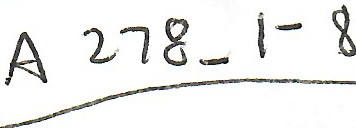 A 278_1-8